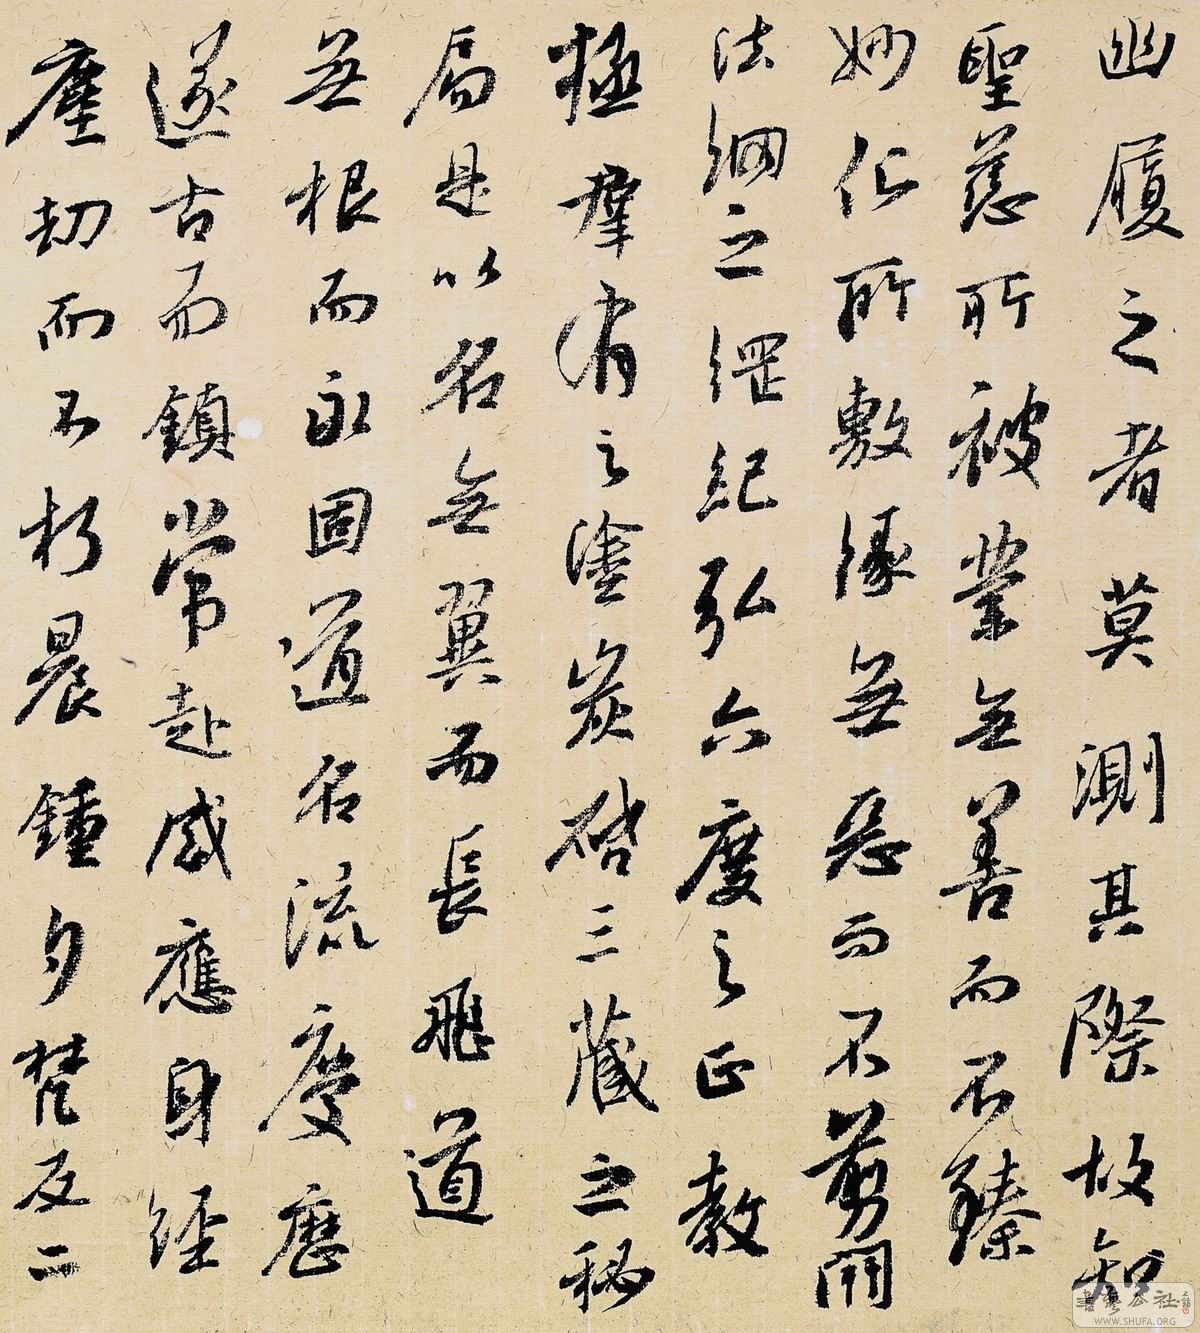 幽履之者莫測其際故知
聖慈所被業無善而不臻
妙化所敷緣無惡而不剪開
法網之綱紀弘六度之正教
拯羣有之塗炭啓三藏之秘
扃是以名無翼而長飛道
無根而永固道名流慶歷
遂古而鎮常赴感應身經
塵劫而不朽晨鍾夕梵交二
書藝公社
WWW.SHUFA.ORG